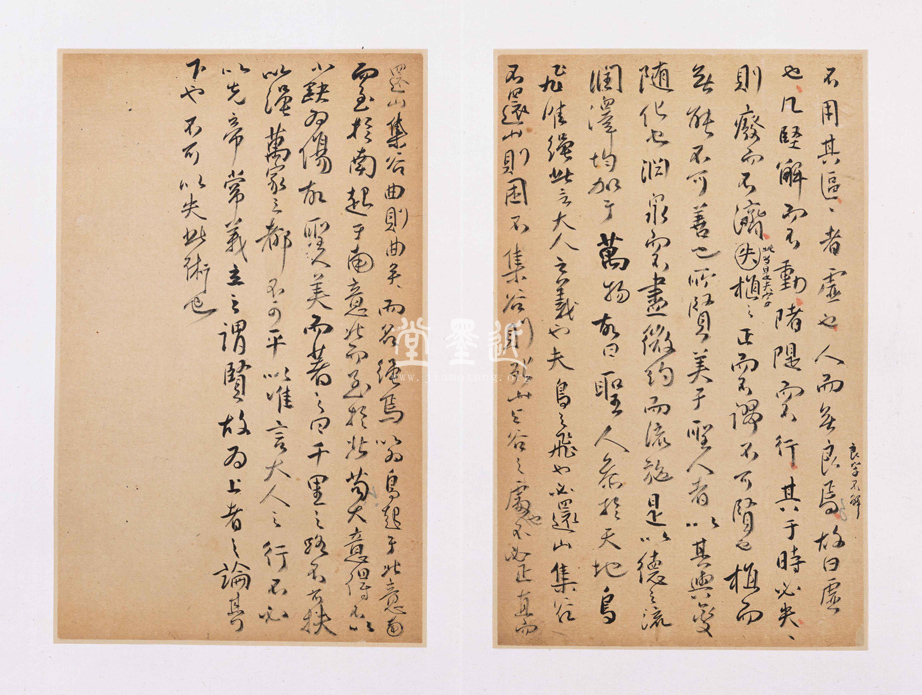 不用其區〻者虛也人而無良焉故曰虛
良字不解
也凡堅解而不動陼隄而不行其于時必失〻
則廢而不濟失植之正而不謬不可賢也植而
無能不可善也所賢美于聖人者以其與變
隨化也淵泉而不盡微約而流施是以德之流
潤澤均加于萬物故曰聖人參於天地鳥
飛准繩此言大人之義也夫鳥之飛也必還山集谷
不還山則困不集谷則死山與谷之處也不必正直而
還山集谷曲則曲矣而名繩焉以為鳥起于北意南
而至於南起于南意北而至於北苟大意得不以
小缺為傷故聖人美而著之曰千里之路不可扶
以繩萬家之都不可平以准言大人之行不必
以先帝常義立之謂賢故為上者之論其
下也不可以失此術也
近墨堂